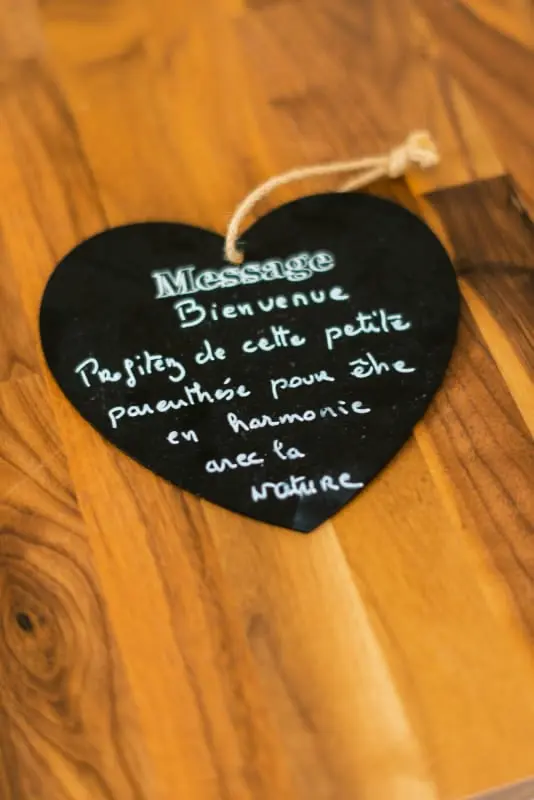 Message
Bienvenue
Profitez de cette petite
parenthèse pour être
en harmonie
avec la
NATURE